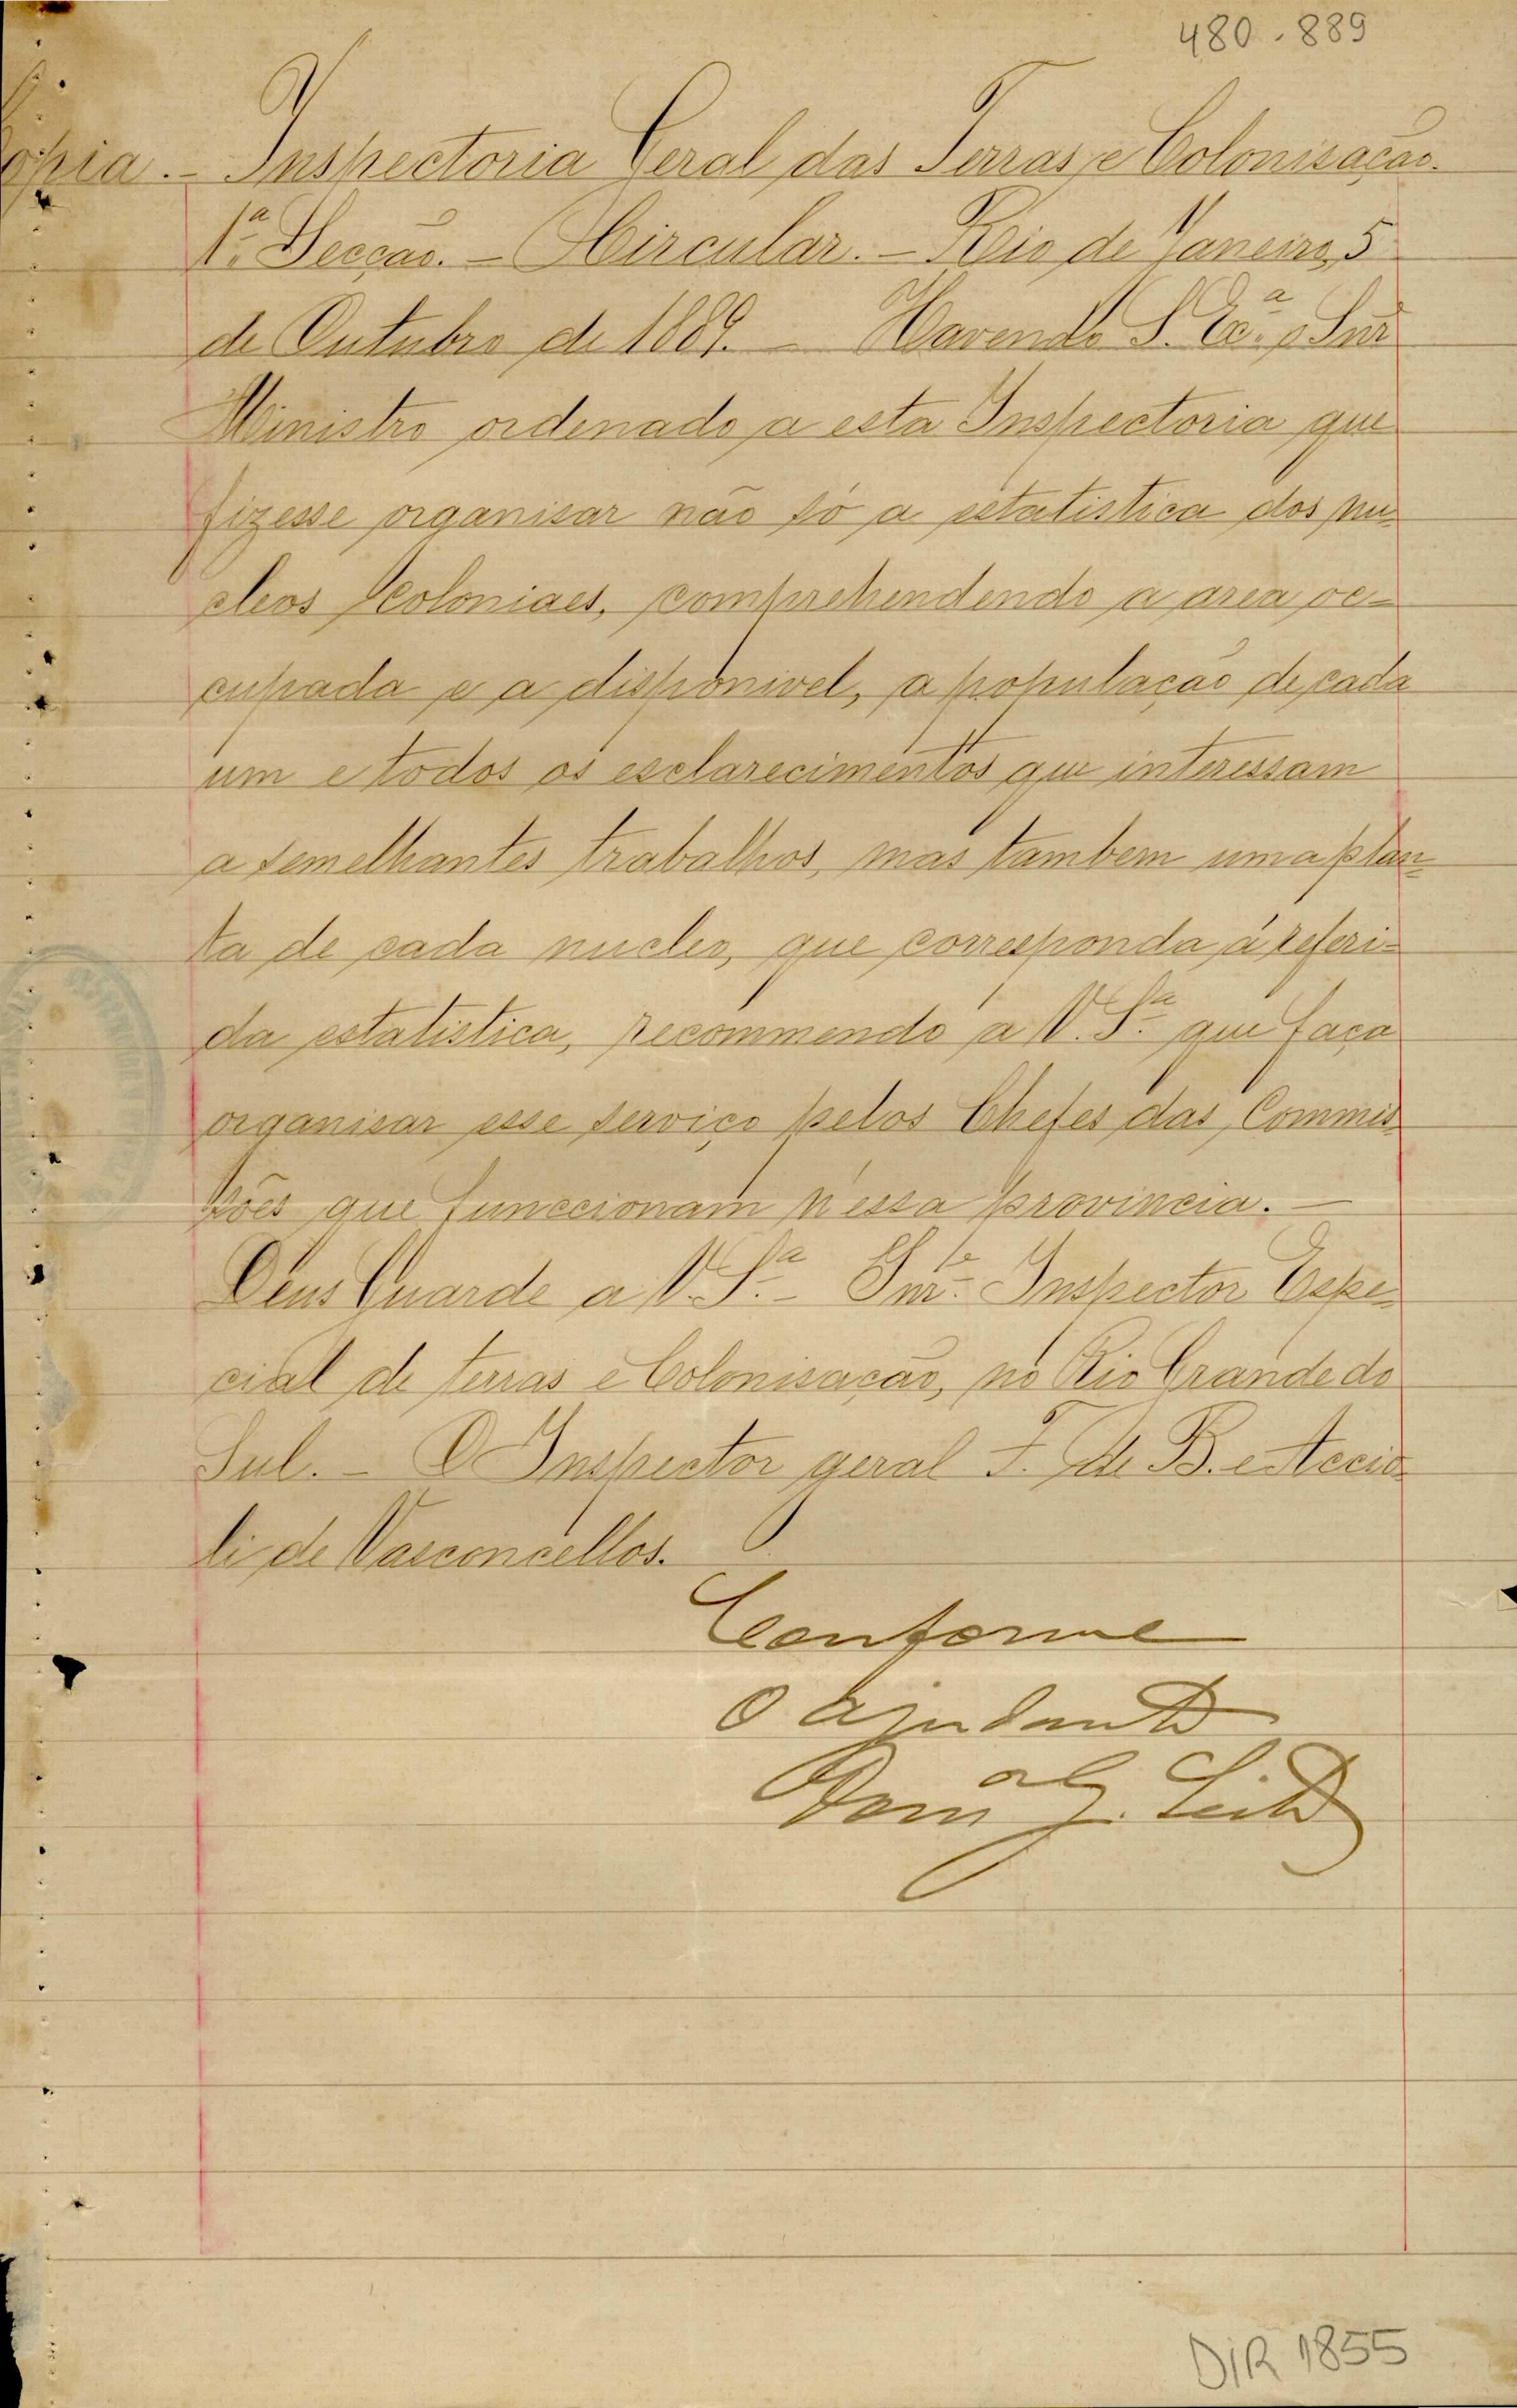 480-889
Copia. - Inspectoria Geral das Terras e Colonisação.
1ª Secção. - Circular. - Rio de Janeiro, 5
de Outubro de 1889. - Havendo S. Exª o Snr
Ministro ordenado a esta Inspectoria que
fizesse organisar não só a estatistica dos nu-
cleos coloniaes, comprehendendo a area oc-
cupada e a disponivel, a população de cada
um e todos os esclarecimentos que interessam
a semelhantes trabalhos, mas tambem uma plan-
ta de cada nucleo, que corresponda á referi-
da estatistica, recommendo a V. Sª que faça
organisar esse serviço pelos Chefes das Commis-
sões que funccionam n'essa provincia. -
Deus Guarde a V. Sª - Snr. Inspector Espe-
cial de terras e Colonisação, no Rio Grande do
Sul. - O Inspector geral F. de B. e Accio-
li de Vasconcellos.
Conforme
O Ajudante
Leite
DIR 1855